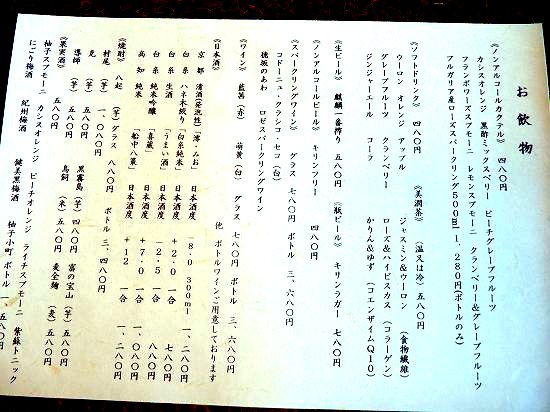 お飲物
《ノンアルコールカクテル》 四八〇円
カシスオレンジ 黒酢ミックスベリー ピーチグレープフルーツ
フランボワーズスプモーニ レモンスプモーニ クランベリー&グレープフルーツ
ブルガリア産ローズスパークリング500ml 一、二八〇円(ボトルのみ)
《ソフトドリンク》 四八〇円
ウーロン オレンジ アップル
グレープフルーツ クランベリー
ジンジャーエール コーラ
《美潤茶》 (温又は冷) 五八〇円
ジャスミン&ウーロン (食物繊維)
ローズ&ハイビスカス (コラーゲン)
かりん&ゆず (コエンザイムQ10)
《生ビール》 麒麟一番搾り 五八〇円
《瓶ビール》 キリンラガー 七八〇円
《ノンアルコールビール》 キリンフリー 四八〇円
《スパークリングワイン》 グラス 七八〇円 ボトル 三、六八〇円
コドーニュ・クラシコ・セコ (白)
穂坂のあわ ロゼスパークリングワイン
《ワイン》 藍茜 (赤) 萌黄 (白) グラス 七八〇円 ボトル 三、六八〇円
他 ボトルワインご用意しております
《日本酒》
京都 清酒(発泡性) 「澪・みお」 日本酒度
白糸 ハネ木搾り 「白糸純米」 日本酒度 +2.0 一合
白糸 生酒 「うまい酒」 日本酒度 -2.5 一合 七八〇円
白糸 純米吟醸 「喜蔵」 日本酒度 +7.0 一合
高知 純米 「船中八策」 日本酒度 +12 一合
《焼酎》 八起 (芋) グラス 八八〇円 ボトル 三、四八〇円
村尾 (芋) 一、〇八〇円
兎 (芋) 五八〇円 黒霧島 (芋) 四八〇円 富の宝山 (芋) 五八〇円
導師 (芋) 五八〇円 鳥飼 (米) 五八〇円 麦全麹 (麦) 五八〇円
《果実酒》 五八〇円
柚子スプモーニ カシスオレンジ ピーチオレンジ ライチスプモーニ 紫蘇トニック
にごり梅酒 紀州梅酒 健美黒梅酒 柚子小町 ボトル 一、五八〇円